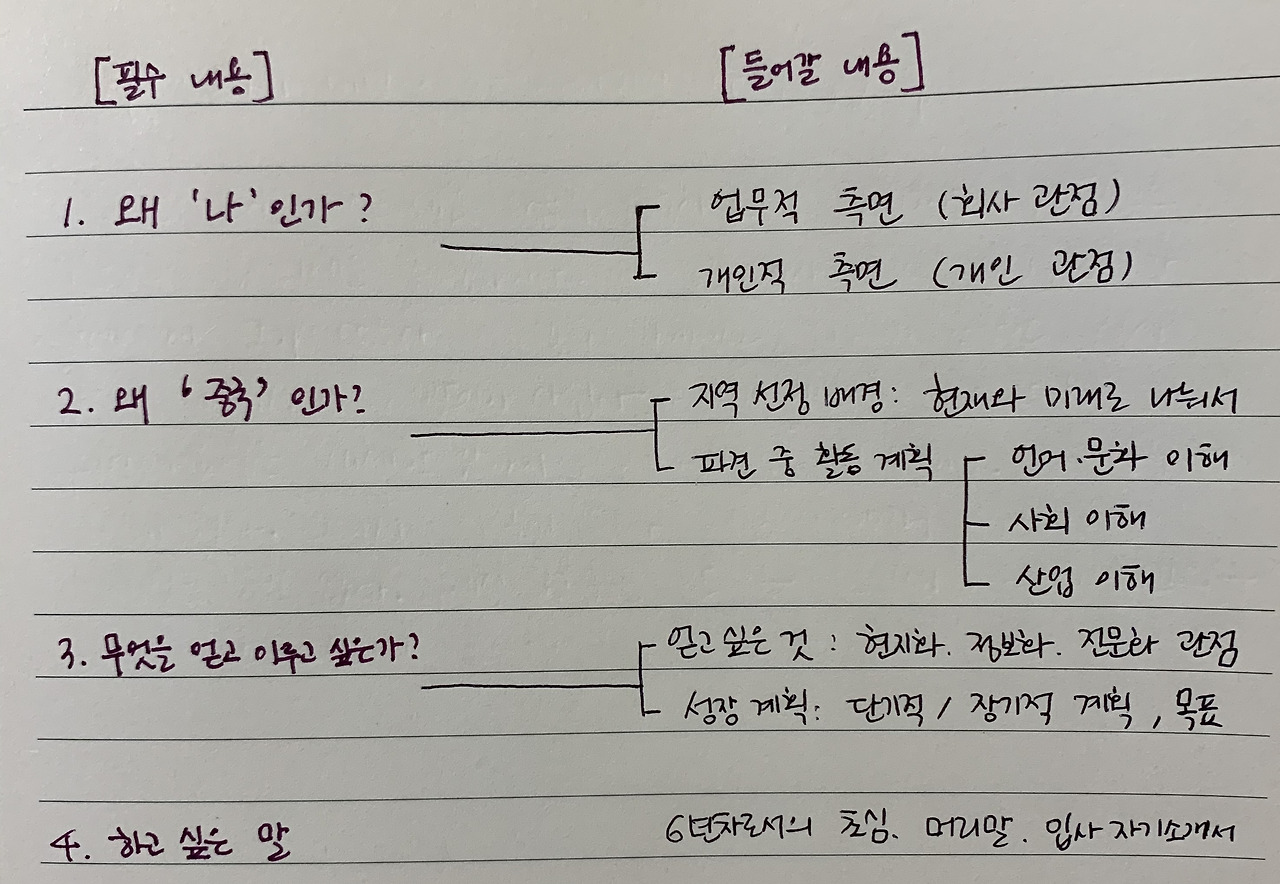 [필수 내용] [들어갈 내용]
1. 왜 '나'인가? 업무적 측면 (회사 관점)
개인적 측면 (개인 관점)
2. 왜 '중국'인가? 지역 선정 배경: 현재와 미래로 나눠서
파견 중 활동 계획 언어·문화 이해
사회 이해
산업 이해
3. 무엇을 얻고 이루고 싶은가? 얻고 싶은 것 : 현지화. 정보화. 전문화 관점
성장 계획: 단기적 / 장기적 계획, 목표
4. 하고 싶은 말 6년차로서의 초심. 머리말. 입사 자기소개서